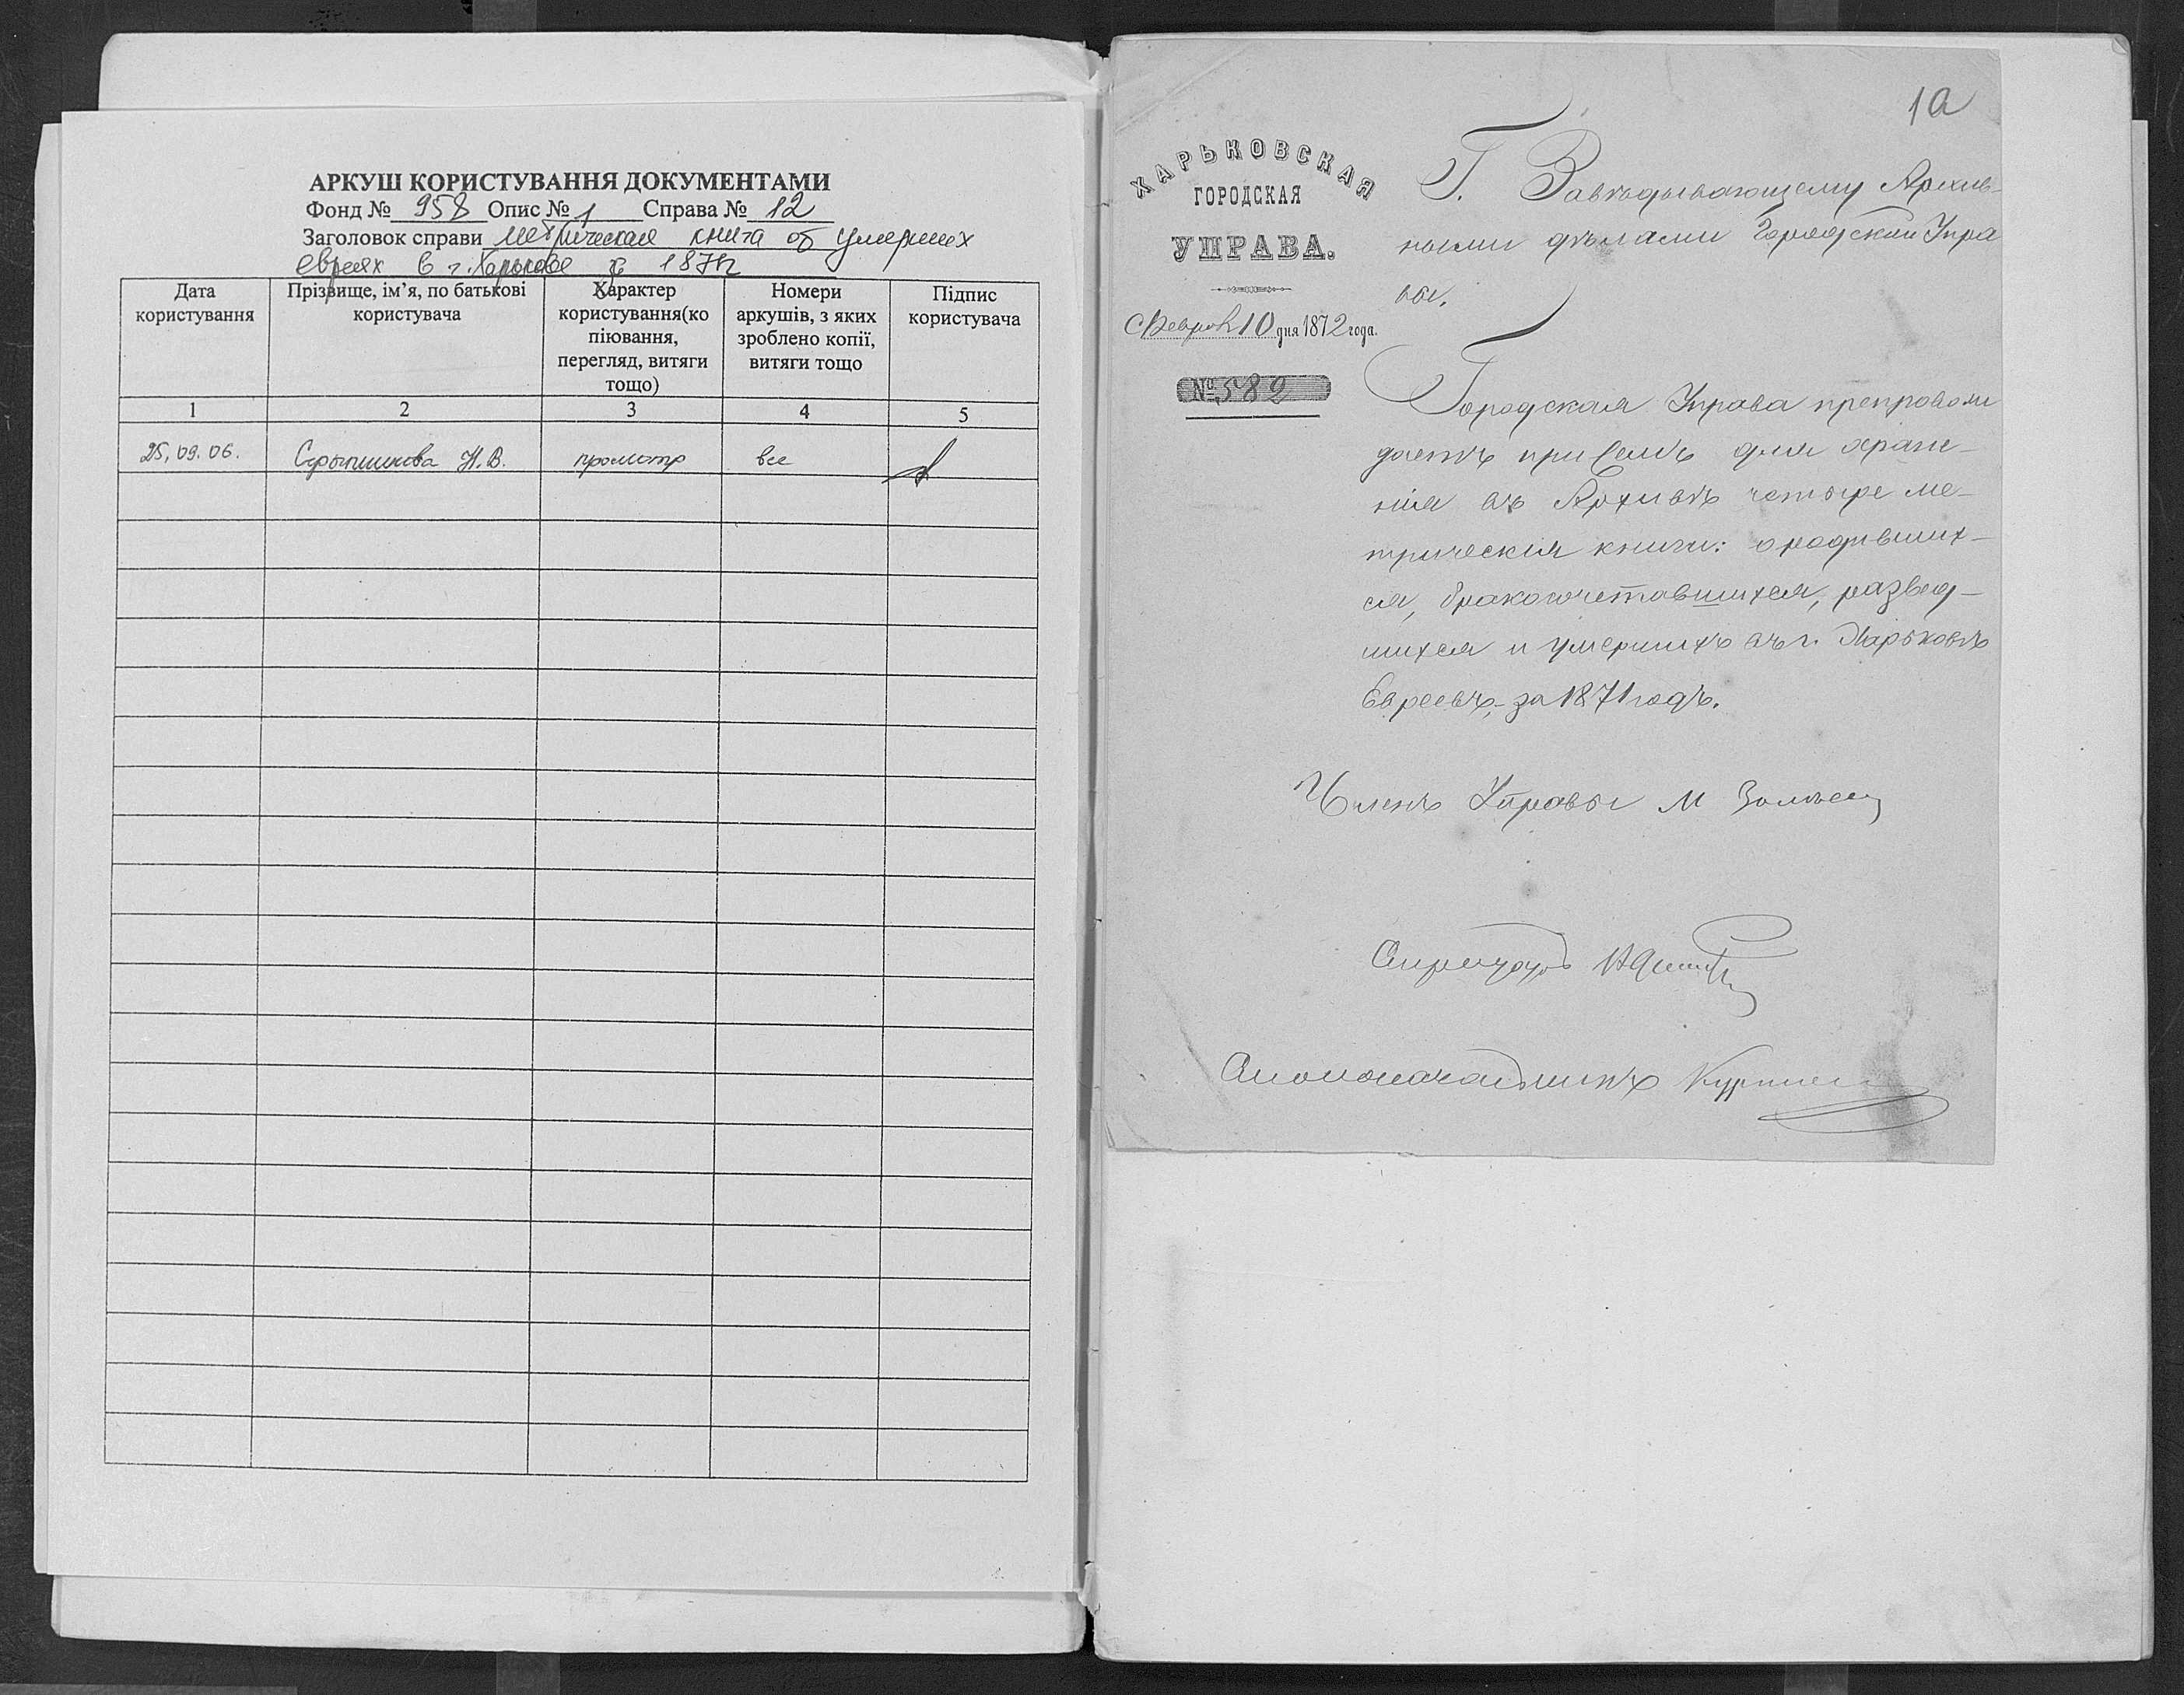 АРКУШ КОРИСТУВАННЯ ДОКУМЕНТАМИ
Фонд № 958 Опис № 1 Справа № 12
Заголовок справи метрическая книга об умерших
евреях в г. Харькове
Дата користування
Прізвище, ім’я, по батькові користувача
Характер користування(ко піювання, перегляд, витяги тощо)
Номери аркушів, з яких зроблено копії, витяги тощо
Підпис користувача
1 2 3 4 5
25.09.06. Н.В. просмотр все
1а
ХАРЬКОВСКАЯ
ГОРОДСКАЯ
УПРАВА.
10 дня 1872 года.
№ 582
Г. Завѣдывающему Архив-
ными дѣлами Городской Упра
вы.
Городская Управа препровож
даетъ при семъ для хране-
нія въ Архивѣ четыре ме-
трическія книги: о родивших-
ся, бракосочетавшихся, развед-
шихся и умершихъ въ г. Харьковѣ
Евреевъ, за 1871 годъ.
Членъ Управы М
Секретарь
Столоначальникъ